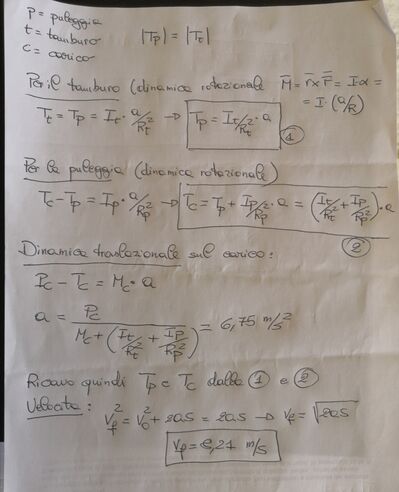 P = puleggia
t = tamburo |Tp| = |Tt|
c = carico
Per il tamburo (dinamica rotazionale M̄ = r̄ x F̄ = I·α =
= I·(a/R)
Tt = Tp = It · a/Rt² → Tp = It/Rt² · a
1
Per la puleggia (dinamica rotazionale)
Tc - Tp = Ip · a/Rp² → Tc = Tp + Ip/Rp² · a = (It/Rt² + Ip/Rp²) · a
2
Dinamica traslazionale sul carico:
Pc - Tc = Mc · a
a = Pc / (Mc + (It/Rt² + Ip/Rp²)) = 6,75 m/s²
Ricavo quindi Tp e Tc dalle 1 e 2
Velocità: Vf² = V0² + 2as = 2as → Vf = √2as